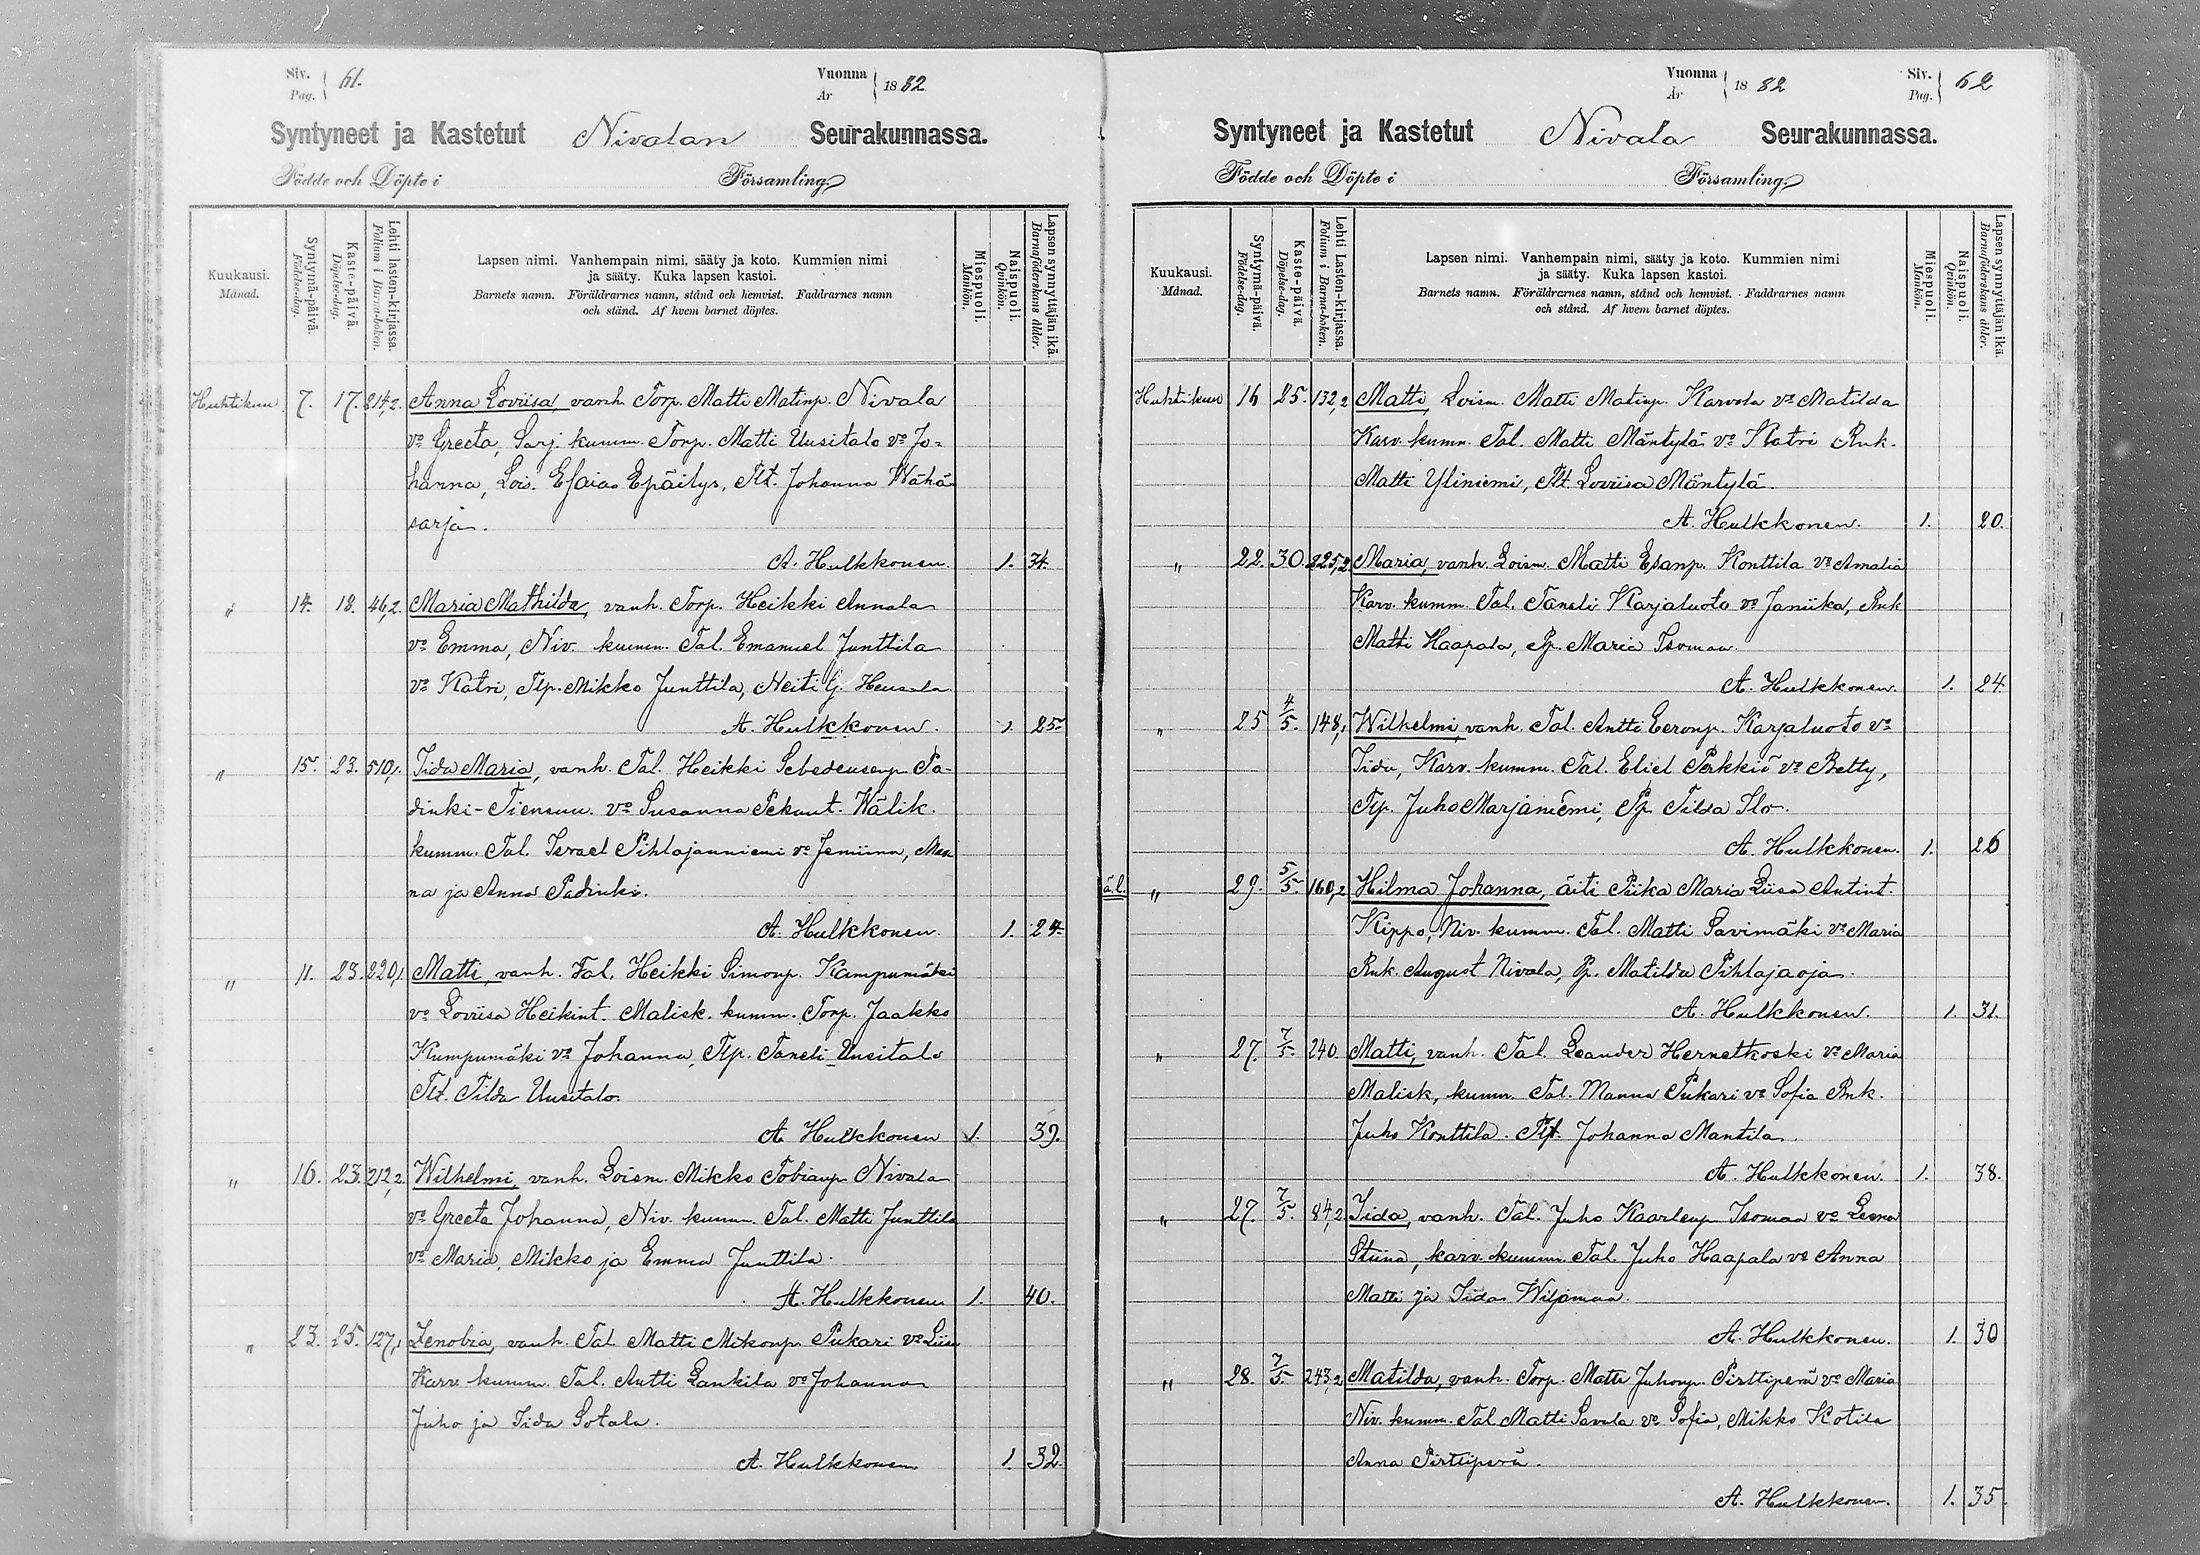 Siv. Pag. 61. Vuonna År 1882
Syntyneet ja Kastetut Nivalan Seurakunnassa.
Födde och Döpte i Församling
Kuukausi. Månad.
Syntymä-päivä. Födelse-dag.
Kaste-päivä. Döpelse-dag.
Lehti lasten-kirjassa. Folium i Barna-boken.
Lapsen nimi. Vanhempain nimi, sääty ja koto. Kummien nimi
ja sääty. Kuka lapsen kastoi.
Barnets namn. Föräldrarnes namn, stånd och hemvist. Faddrarnes namn
och stånd. Af hvem barnet döptes.
Miespuoli. Mankön.
Naispuoli. Qvinkön.
Lapsen synnyttäjän ikä. Barnaföderskans ålder.
Huhtikuu 7. 17. 214,2. Anna Loviisa, vanh. Torp. Matti Matinp. Nivala
vo Greeta, Sarj. kumm. Torp. Matti Uusitalo vo Jo-
hanna, Lois. Esaias Epäilys, Tlt. Johanna Wähä
sarja.
A. Hulkkonen. 1. 34.
" 14. 18. 46,2. Maria Mathilda, vanh. Torp. Heikki Annala
vo Emma, Niv. kumm. Tal. Emanuel Junttila
vo Katri, Tlp. Mikko Junttila, Neiti G. Heusala
A. Hulkkonen. 1. 25.
" 15. 23. 510,1. Iida Maria, vanh. Tal. Heikki Sebedeusenp. Pa-
dinki-Tiensuu. vo Susanna Pekant. Wälik.
kumm. Tal. Israel Pihlajanniemi vo Jemiina, Man
na ja Anna Padinki.
A. Hulkkonen. 1. 24.
" 11. 23. 220,1. Matti, vanh. Tal. Heikki Simonp. Kumpumäki
vo Loviisa Heikint. Malisk. kumm. Torp. Jaakko
Kumpumäki vo Johanna, Tlp. Taneli Uusitalo
Tlt. Tilda Uusitalo.
A. Hulkkonen 1. 39.
" 16. 23. 212,2. Wilhelmi, vanh. Loism. Mikko Tobianp. Nivala
vo Greeta Johanna, Niv. kumm. Tal. Matti Junttila
vo Maria, Mikko ja Emma Junttila.
A. Hulkkonen 1. 40.
" 23. 25. 127,1 Zenobia, vanh. Tal. Matti Mikonp. Pukari vo Liisa
Karv. kumm. Tal. Antti Lankila vo Johanna
Juho ja Iida Sotala.
A. Hulkkonen. 1. 32.
Vuonna År 1882 Siv. Pag. 62
Syntyneet ja Kastetut Nivala Seurakunnassa.
Födde och Döpte i Församling
Kuukausi. Månad.
Syntymä-päivä. Födelse-dag.
Kaste-päivä. Döpelse-dag.
Lehti Lasten-kirjassa. Folium i Barna-boken.
Lapsen nimi. Vanhempain nimi, sääty ja koto. Kummien nimi
ja sääty. Kuka lapsen kastoi.
Barnets namn. Föräldrarnes namn, stånd och hemvist. Faddrarnes namn
och stånd. Af hvem barnet döptes.
Miespuoli. Mankön.
Naispuoli. Qvinkön.
Lapsen synnyttäjän ikä. Barnaföderskans ålder.
Huhtikuu 16 25. 132,2 Matti, Loism. Matti Matinp. Karvola vo Matilda
Karv. kumm. Tal. Matti Mäntylä vo Katri Rnk.
Matti Yliniemi, Tlt. Loviisa Mäntylä.
A. Hulkkonen. 1. 20.
" 22. 30. 225,2. Maria, vanh. Loism. Matti Esanp. Konttila vo Amalia
Karv. kumm. Tal. Taneli Karjaluoto vo Janiika, Rnk
Matti Haapala, Pp. Maria Isomaa.
A. Hulkkonen. 1. 24.
" 25 4/5. 148,1 Wilhelmi, vanh. Tal. Antti Eeronp. Karjaluoto vo
Iida, Karv. kumm. Tal. Eliel Perkkiö vo Betty,
Tlp. Juho Marjaniemi, Pp. Tilda Ilo.
A. Hulkkonen. 1. 26
ä.l. " 29. 5/5. 160,2 Hilma Johanna, äiti Piika Maria Liisa Antint.
Kippo, Niv. kumm. Tal. Matti Savimäki vo Maria
Rnk. August Nivala, Pp. Matilda Pihlajaoja.
A. Hulkkonen. 1. 31.
" 27. 7/5. 240. Matti, vanh. Tal. Leander Hernetkoski vo Maria
Malisk, kumm. Tal. Manna Pukari vo Sofia Rnk.
Juho Konttila. Tlt. Johanna Mantila.
A. Hulkkonen. 1. 38.
" 27. 7/5. 84,2. Iida, vanh. Tal. Juho Kaarlenp. Isomaa vo Leena
Stiina, karv. kumm. Tal. Juho Haapala vo Anna
Matti ja Iida Wiljamaa.
A. Hulkkonen. 1. 30
" 28. 7/5 243,2 Matilda, vanh. Torp. Matti Juhonp. Pirttiperä vo Maria
Niv. kumm. Tal. Matti Savela vo Sofia, Mikko Kotila
Anna Pirttiperä.
A. Hulkkonen. 1. 35.